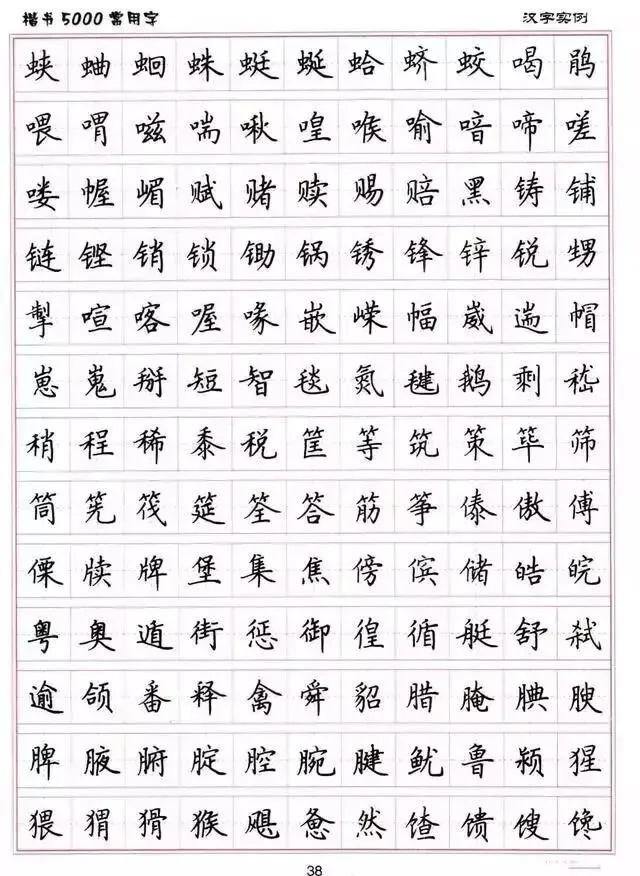 楷书5000常用字 汉字实例
蛱蛐蛔蛛蜓蜒蛤蛴蛟喝鹃
喂喟嗞喘啾喤喉喻喑啼嗟
喽幄嵋赋赌赎赐赔黑铸铺
链铿销锁锄锅锈锋锌锐甥
掣喧喀喔喙嵌嵘幅崴遄帽
崽嵬掰短智毯氮毽鹅剩嵇
稍程稀黍税筐等筑策筚筛
筒筅筏筵筌答筋筝傣傲傅
傈牍牌堡集焦傍傧储皓皖
粤奥遁街惩御徨循艇舒弑
逾颌番释禽舜貂腊腌腆腴
脾腋腑腚腔腕腱鱿鲁颍猩
猥猬猾猴飓惫然馇馈馊馋
38